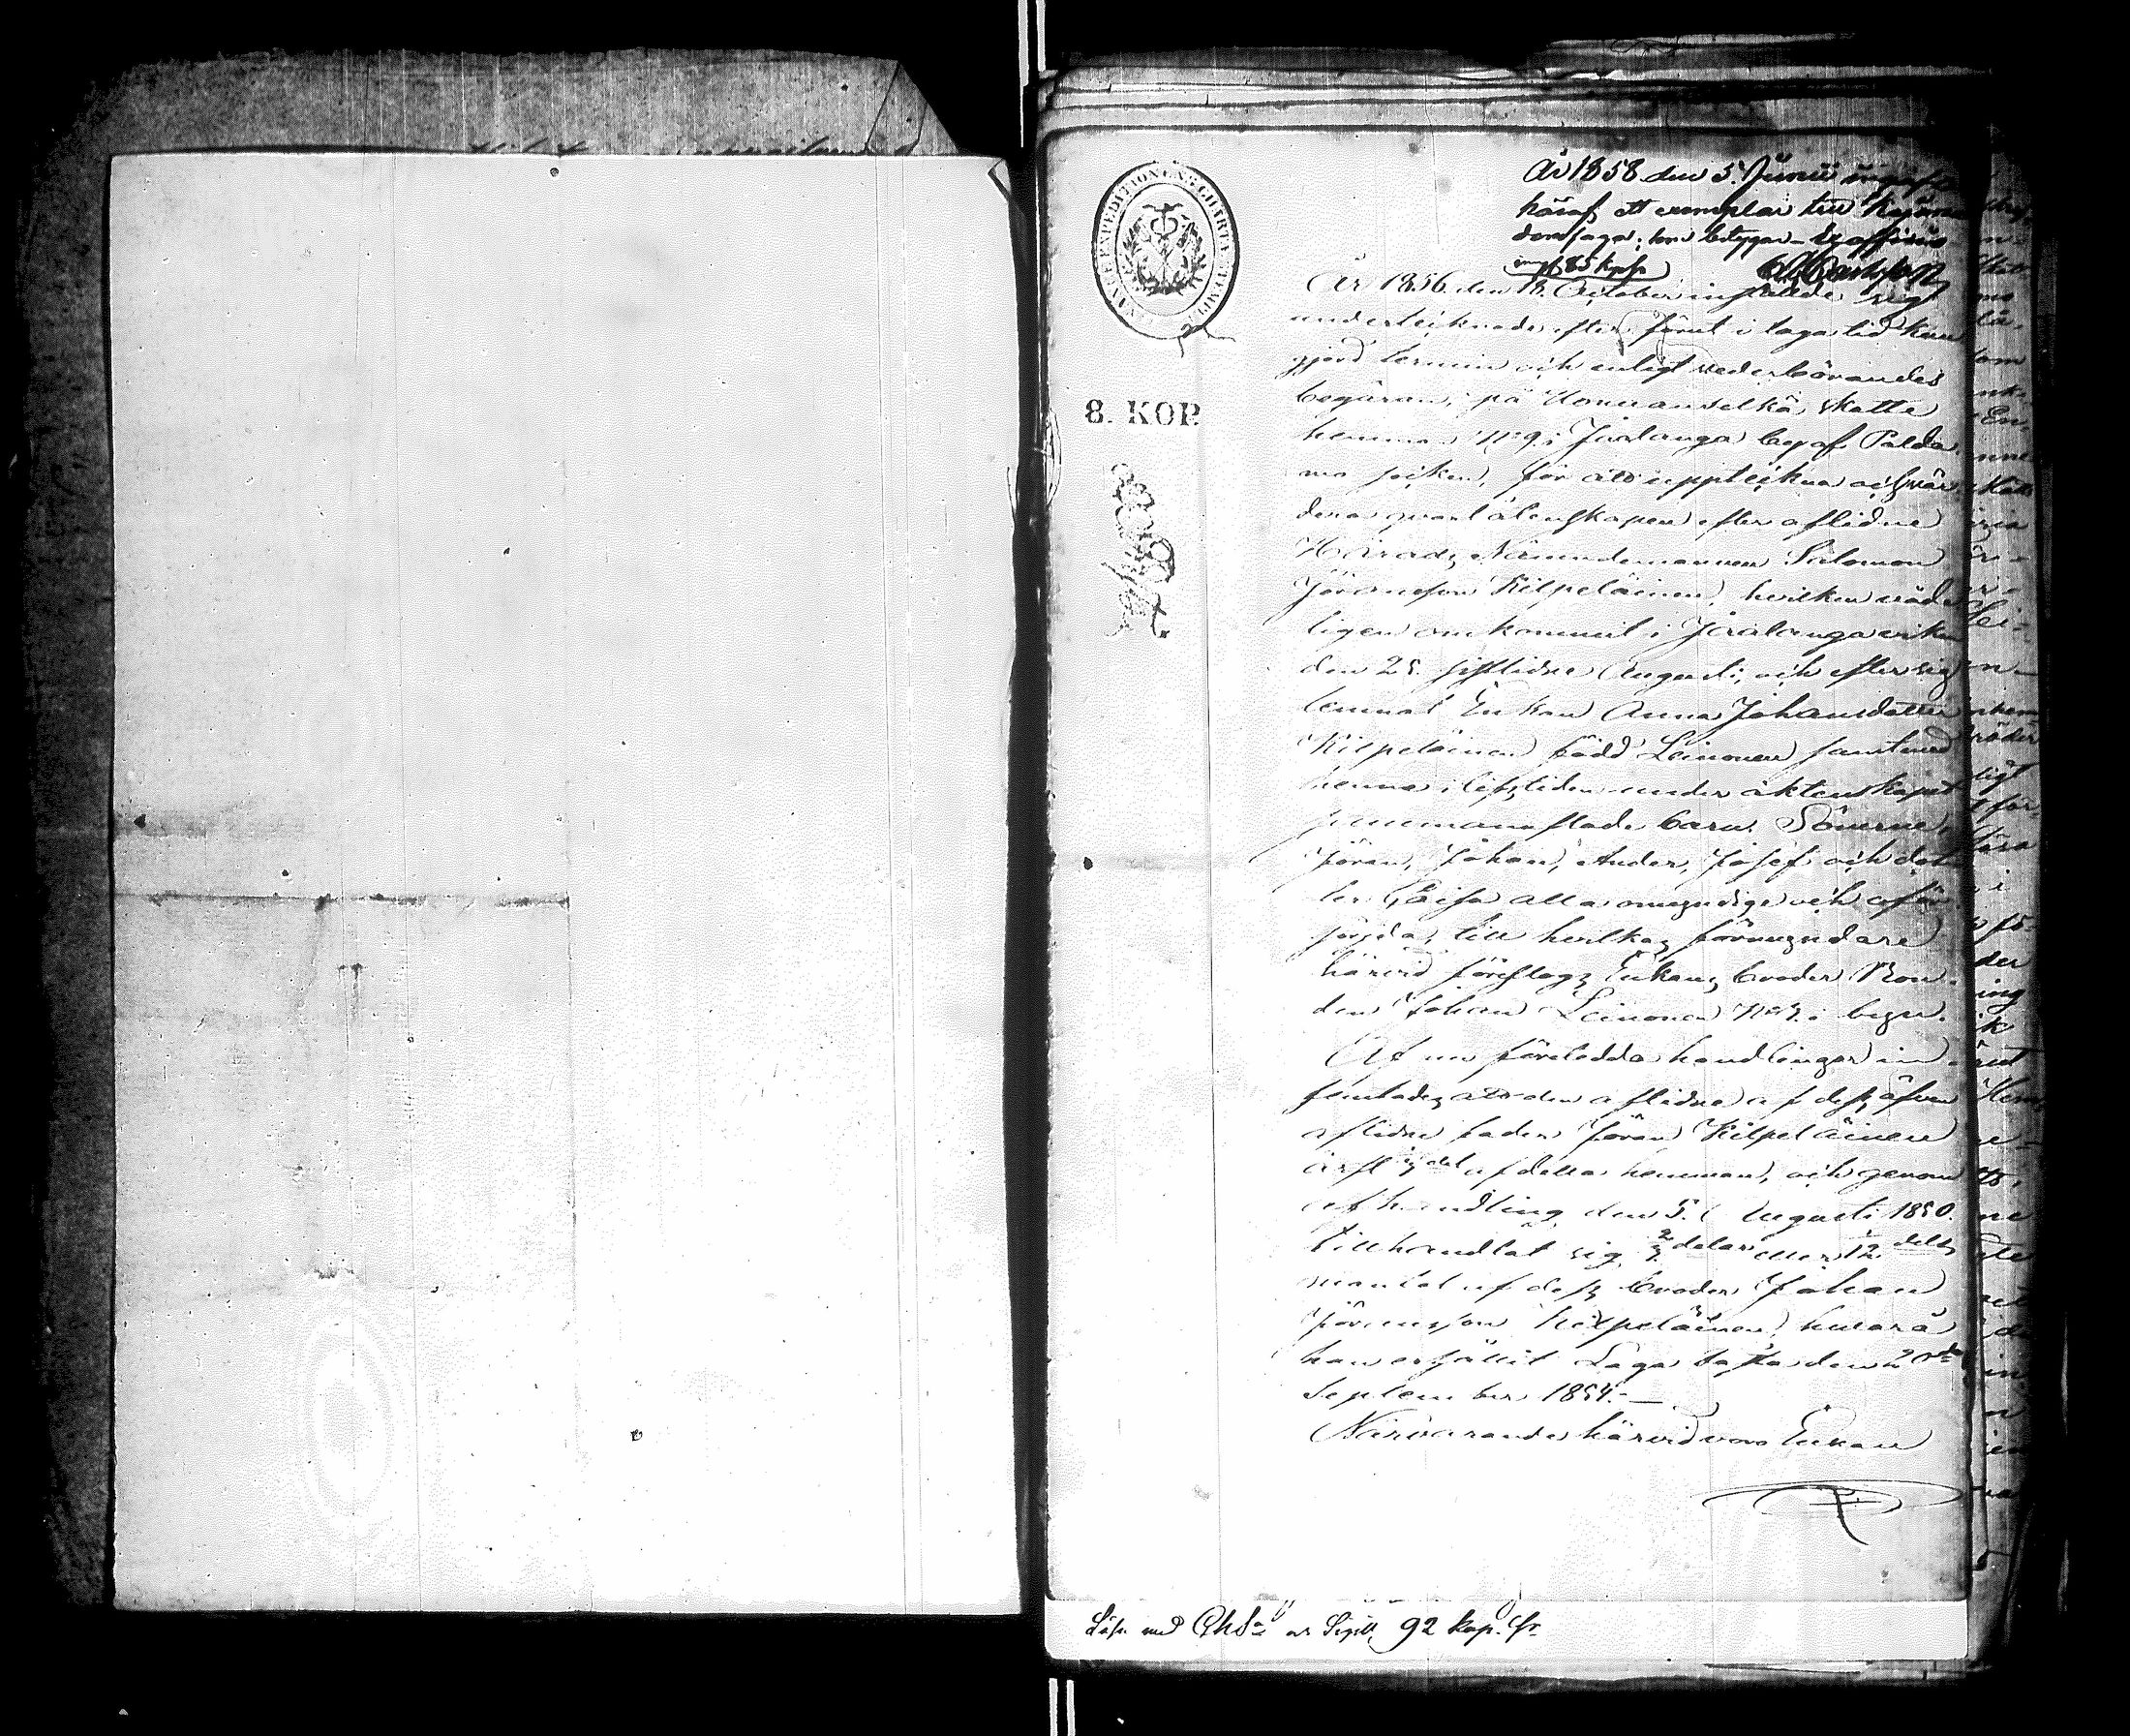 År 1858 den 5. Junii
häraf ett exemplar till Kajana
domsaga; som betygar Ex officio
85 kop. sr
År 1856 den 18. October inställde sig
undertecknade efter förut i laga tid kun
gjord termin och enligt vederbörandes
begäran, på skatte
hemman No 9. i Jaalanga by af Palda
mo socken, för att uppteckna och vär
dera qvarlåtenskapen efter aflidne
Härads Nämndemannen Salomon
Jöransson Kilpeläinen, hvilken våd
ligen omkommit i Jaalanga
den 25. sistlidne Augusti, och efter sig
lemnat Enkan Anna Johansdotter
Kilpeläinen född Leinonen samt med
henne i lifstiden under äktenskapet
sammanaflade barn. Sönerne,
Jöran, Johan, Ander, Josef och dot
ter Caisa alla omyndige och oför
sörjda, till hvilkas förmyndare
härvid föreslogs Enkans broder Bon
den Johan Leinonen No i byn.
Af nu företedda handlingar in
hemtades att den aflidne af dess äfven
aflidne fader Jöran Kilpeläinen
ärft del af detta hemman, och genom
afhandling den 5. Augusti 1850.
tillhandlat sig delar eller 12 dels
mantal af dess broder Johan
Jöransson Kilpeläinen, hvarå
han erhållit Laga fasta den 20de
September 1854. —
Närvarande härvid voro Enkan
8. KOP.
92 kop. Sr.